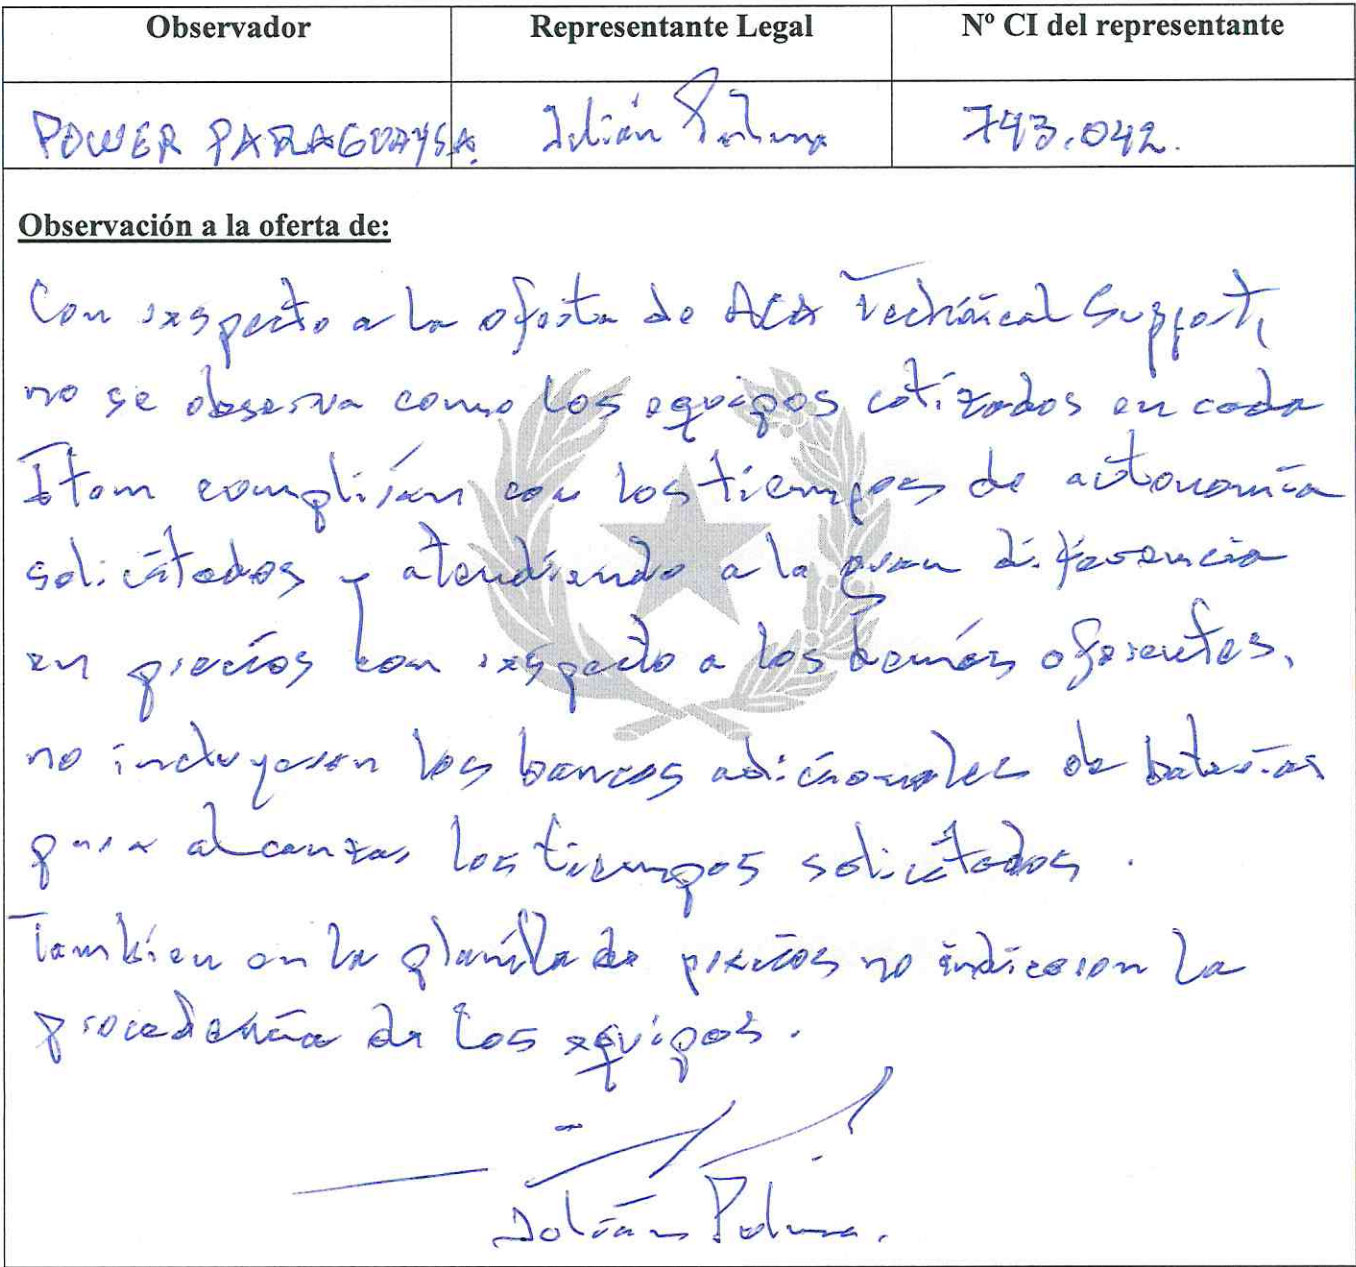 Observador Representante Legal Nº CI del representante
POWER PARAGUAY SA. Julián 743.042.
Observación a la oferta de:
Con respecto a la oferta de ACA Technical Support,
no se observa como los equipos cotizados en cada
Item cumplirían con los tiempos de autonomía
solicitados y atendiendo a la gran diferencia
en precios con respecto a los demás oferentes,
no incluyeron los bancos adicionales de baterías
para alcanzar los tiempos solicitados.
También en la planilla de precios no indicaron la
procedencia de los equipos.
Julián